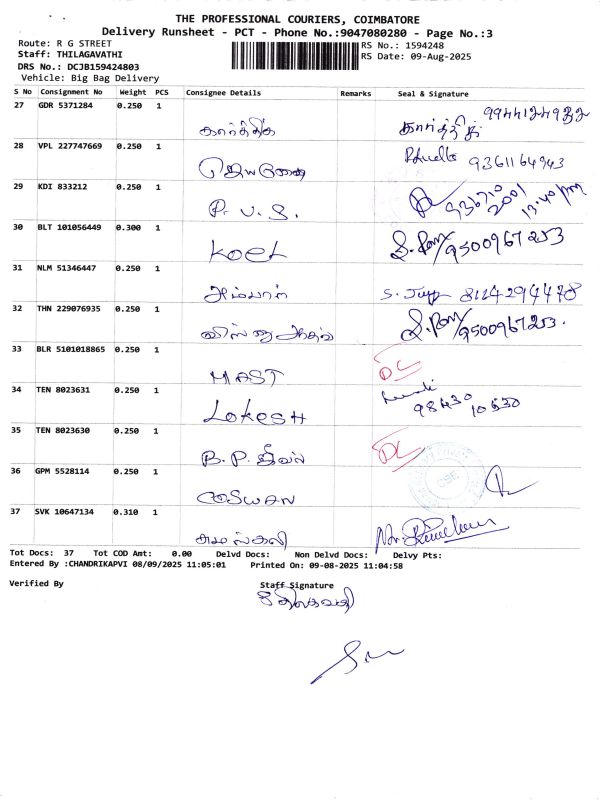 THE PROFESSIONAL COURIERS, COIMBATORE
Delivery Runsheet - PCT - Phone No.:9047080280 - Page No.:3
Route: R G STREET
RS No.: 1594248
Staff: THILAGAVATHI
RS Date: 09-Aug-2025
DRS No.: DCJB159424803
Vehicle: Big Bag Delivery
S No Consignment No Weight PCS Consignee Details Remarks Seal & Signature
27 GDR 5371284 0.250 1
கார்த்திக்
28 VPL 227747669 0.250 1
9361164943
29 KDI 833212 0.250 1
P. V. S.
30 BLT 101056449 0.300 1
KOEL 9500967253
31 NLM 51346447 0.250 1
அம்பாள் 8124294478
32 THN 229076935 0.250 1
9500967253.
33 BLR 5101018865 0.250 1
MAST DC
34 TEN 8023631 0.250 1
LOKESH 98430 10530
35 TEN 8023630 0.250 1
B. P. DC
36 GPM 5528114 0.250 1
COSWAN
37 SVK 10647134 0.310 1
Tot Docs: 37 Tot COD Amt: 0.00 Delvd Docs: Non Delvd Docs: Delvy Pts:
Entered By :CHANDRIKAPVI 08/09/2025 11:05:01 Printed On: 09-08-2025 11:04:58
Verified By Staff Signature